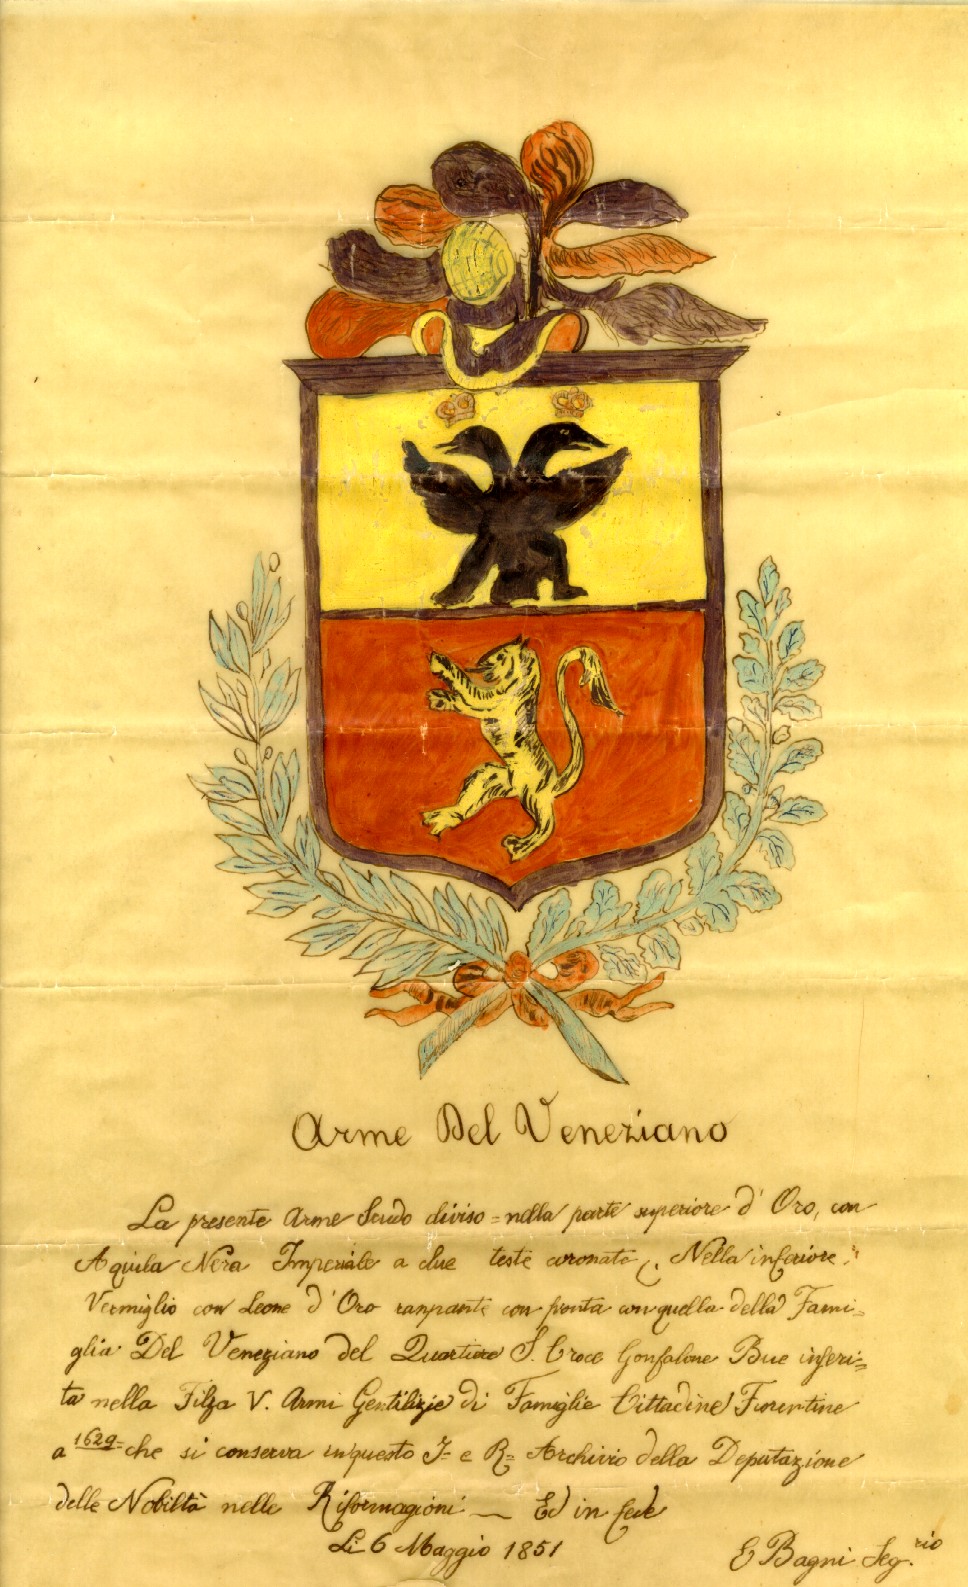 Arme Del Veneziano
La presente Arme Scudo diviso = nella parte superiore d' Oro, con
Aquila Nera Imperiale a due teste coronate, Nella inferiore:
Vermiglio con Leone d' Oro ranpante confronta con quella della Fami=
glia Del Veneziano del Quartiere S. Croce Gonfalone Bue inseri=
ta nella Filza V. Armi Gentilizie di Famiglie Cittadine Fiorentine
a 1629 = che si conserva in questo I= e R= Archivio della Deputazione
delle Nobiltà nelle Riformagioni — Ed in fede
Li 6 Maggio 1851
E Bagni Seg.rio